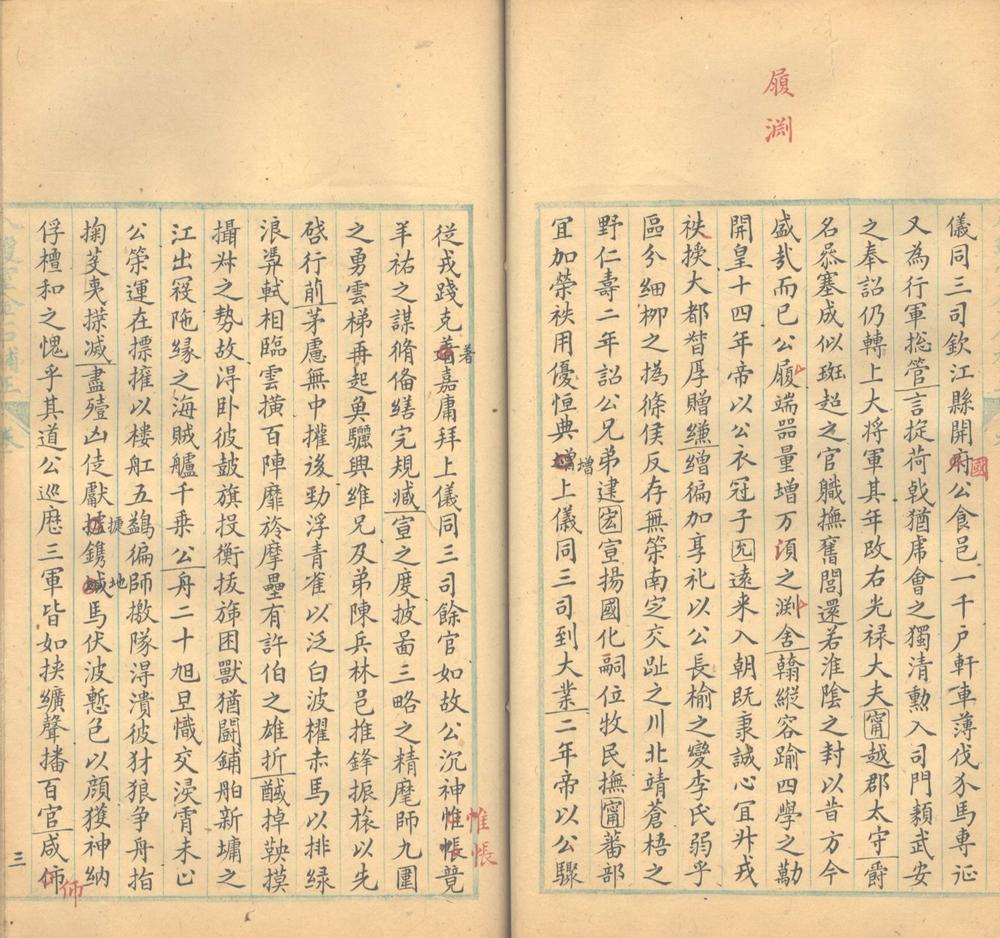 履
渊
儀同三司欽江縣開府公食邑一千戶軒車薄伐介馬專征
國
又為行軍揔管言捉荷戟猶席會之獨清勲入司門類武安
之奉詔仍轉上大将軍其年改右光禄大夫甯越郡太守爵
名忝塞成似斑超之官職撫奮閭還若淮陰之封以昔方今
盛㢤而已公履端器量增万湏之渊舍翰縱容踰四學之勱
開皇十四年帝以公衣冠子㐬遠来入朝既秉誠心冝升戎
袟授大都督厚贈縑繒徧加享礼以公長榆之變李氏弱乎
區分細柳之撝條侯反存無筞南定交趾之川北靖蒼梧之
野仁壽二年詔公兄弟逮宏宣揚國化嗣位牧民撫甯蕃部
冝加榮袟用優恒典上儀同三司到大業二年帝以公驟
增
從戎踐克嘉庸拜上儀同三司餘官如故公沉神惟帳競
著
帷帳
羊祐之謀脩俻繕完規減宣之度披啚三略之精麾師九圍
之勇雲梯再起奠驪興維兄及弟陳兵林邑推鋒振旅以先
啓行前茅慮無中權後勁浮青雀以泛白波櫂赤馬以排緑
浪舁軾相臨雲橫百陣靡旍摩壘有許伯之雄折馘掉鞅摸
攝叔之勢故淂卧彼鼓旗投衡拔斾困獸猶闘鋪舶新墉之
江出冦陁緣之海賊艫千乗公舟二十旭旦幟交浸霄未已
公筞運在摽擁以楼舡五鷁徧師擞隊淂潰彼犲狼争舟指
掬芟夷揲滅盡殪凶徒獻鐫馬伏波慙色以顔獲神納
捷
地
俘檀和之愧乎其道公巡歷三軍皆如挾纊聲播百官咸師
师
三